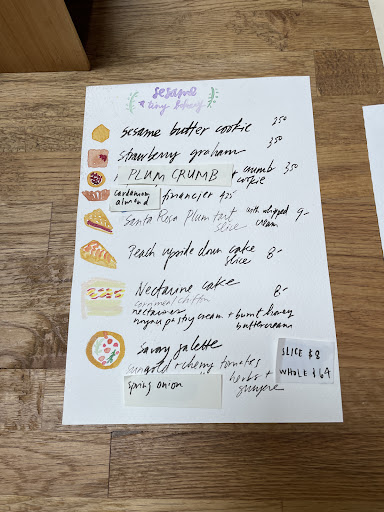 sesame
tiny bakery
sesame butter cookie 350
strawberry graham 350
PLUM CRUMB crumb cookie 350
cardamom almond financier 425
Santa Rosa Plum tart with whipped cream 9-
slice
Peach upside down cake 8-
slice
Nectarine cake 8-
cornmeal chiffon
nectarines
pastry cream + burnt honey
buttercream
Savory galette
sungold + cherry tomatoes
herbs + gruyere
spring onion
SLICE $8
WHOLE $64